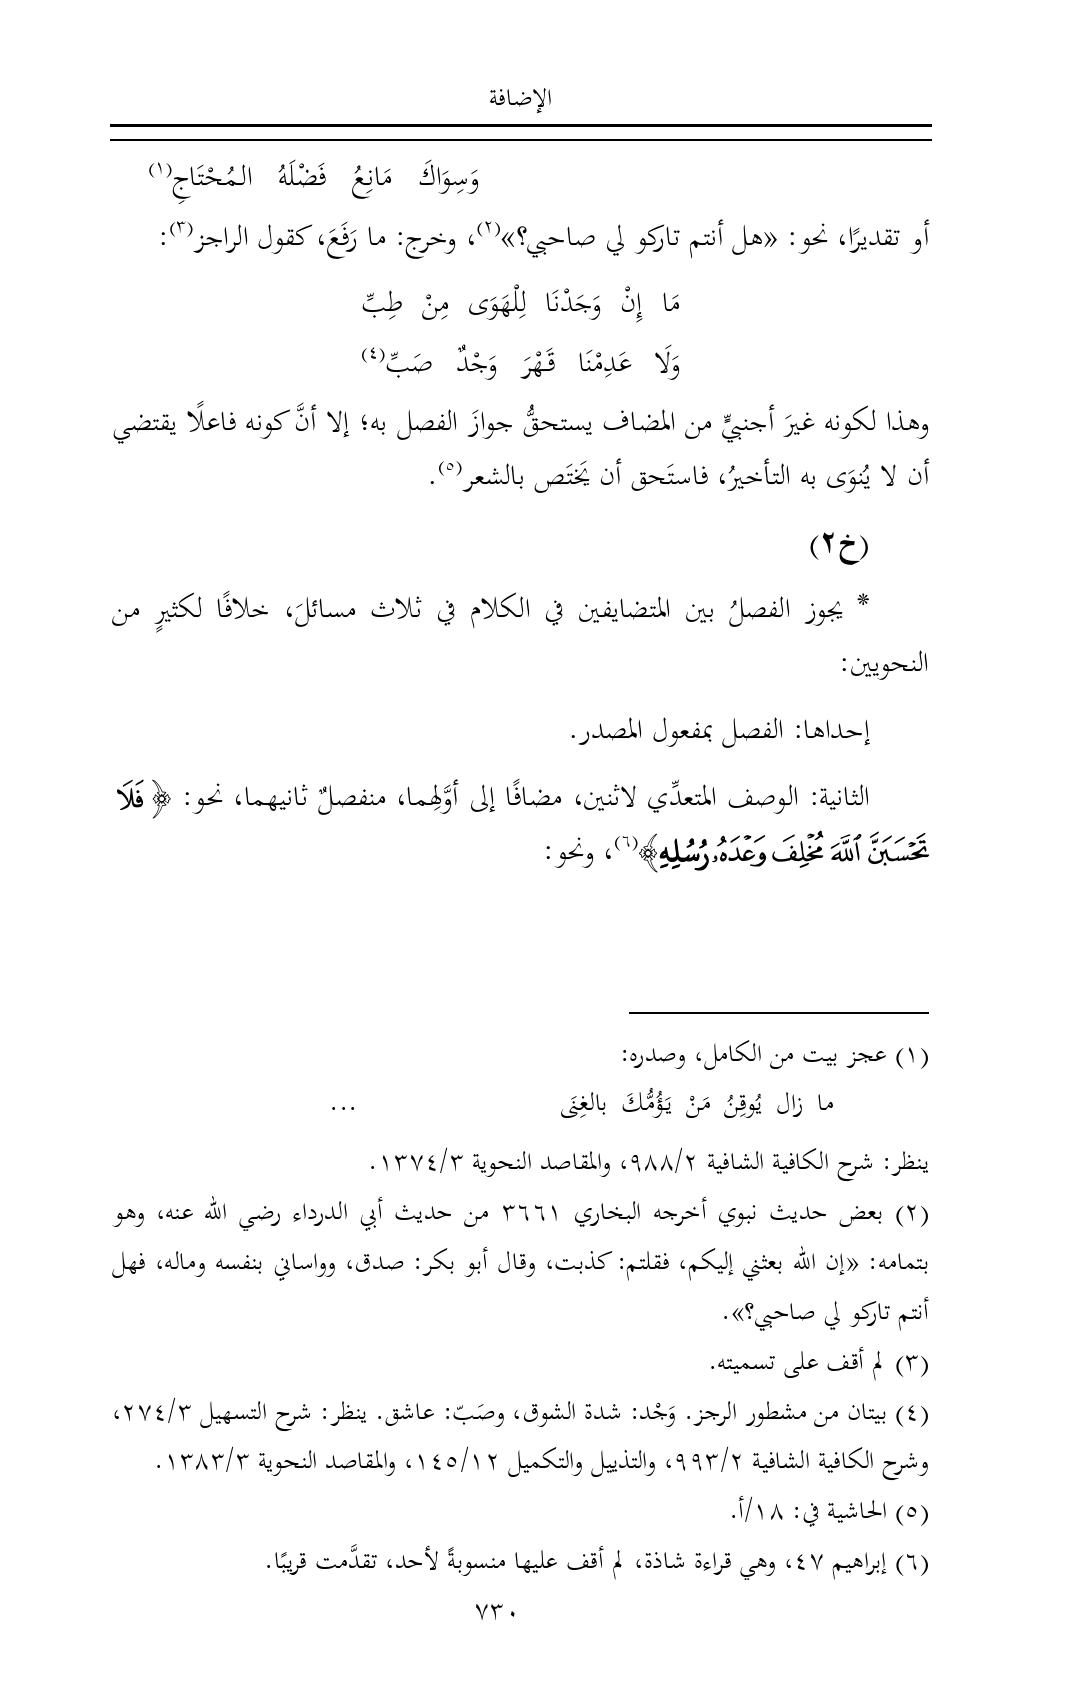 الإضافة
وَسِوَاكَ مَانِعُ فَضْلَهُ المُحْتَاجِ(١)
أو تقديرًا، نحو: «هل أنتم تاركو لي صاحبي؟»(٢)، وخرج: ما رَفَعَ، كقول الراجز(٣):
مَا إِنْ وَجَدْنَا لِلْهَوَى مِنْ طِبِّ
وَلَا عَدِمْنَا قَهْرَ وَجْدٌ صَبِّ(٤)
وهذا لكونه غيرَ أجنبيٍّ من المضاف يستحقُّ جوازَ الفصل به؛ إلا أنَّ كونه فاعلًا يقتضي
أن لا يُنوَى به التأخيرُ، فاستَحق أن يَختَص بالشعر(٥).
(خ٢)
* يجوز الفصلُ بين المتضايفين في الكلام في ثلاث مسائلَ، خلافًا لكثيرٍ من
النحويين:
إحداها: الفصل بمفعول المصدر.
الثانية: الوصف المتعدِّي لاثنين، مضافًا إلى أوَّلِهما، منفصلٌ ثانيهما، نحو: ﴿فَلَا
تَحۡسَبَنَّ ٱللَّهَ مُخۡلِفَ وَعۡدَهُۥ رُسُلِهِ﴾(٦)، ونحو:
(١) عجز بيت من الكامل، وصدره:
ما زال يُوقِنُ مَنْ يَؤُمُّكَ بالغِنَى ...
ينظر: شرح الكافية الشافية ٩٨٨/٢، والمقاصد النحوية ١٣٧٤/٣.
(٢) بعض حديث نبوي أخرجه البخاري ٣٦٦١ من حديث أبي الدرداء رضي الله عنه، وهو
بتمامه: «إن الله بعثني إليكم، فقلتم: كذبت، وقال أبو بكر: صدق، وواساني بنفسه وماله، فهل
أنتم تاركو لي صاحبي؟».
(٣) لم أقف على تسميته.
(٤) بيتان من مشطور الرجز. وَجْد: شدة الشوق، وصَبّ: عاشق. ينظر: شرح التسهيل ٢٧٤/٣،
وشرح الكافية الشافية ٩٩٣/٢، والتذييل والتكميل ١٤٥/١٢، والمقاصد النحوية ١٣٨٣/٣.
(٥) الحاشية في: ١٨/أ.
(٦) إبراهيم ٤٧، وهي قراءة شاذة، لم أقف عليها منسوبةً لأحد، تقدَّمت قريبًا.
٧٣٠